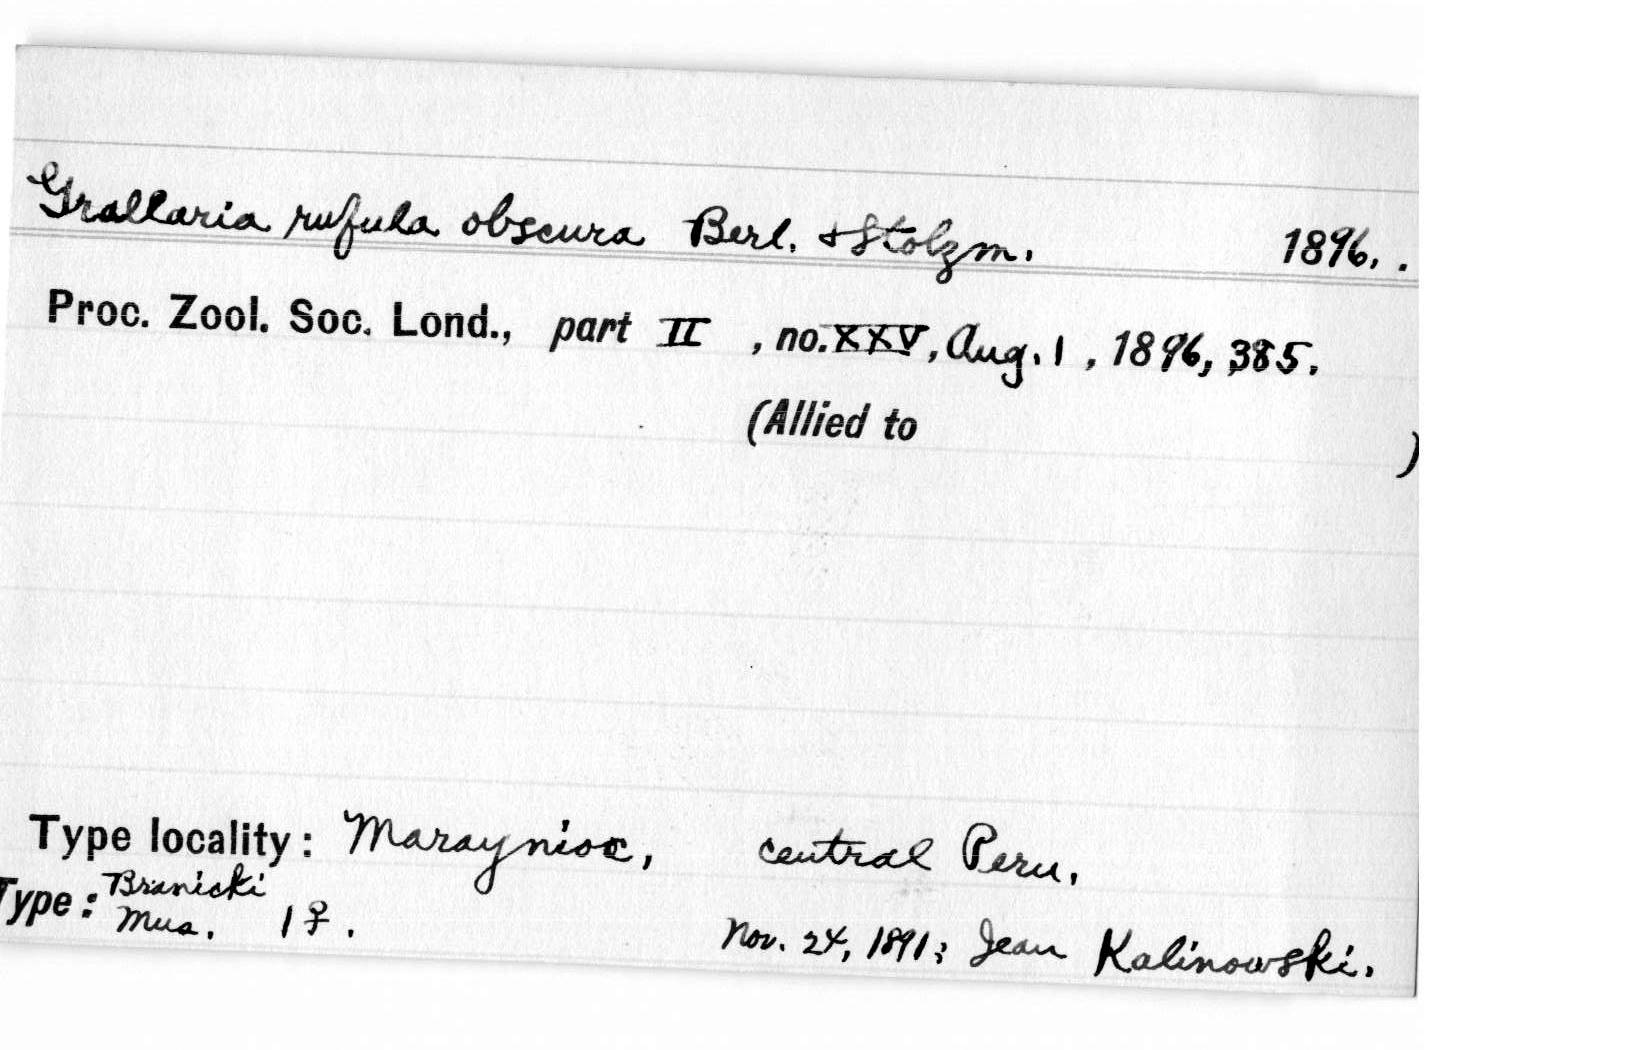 Grallaria rufula obscura Berl. & Stolzm. 1896. .
Proc. Zool. Soc. Lond., part II , no. XXV, Aug. 1 , 1896, 385.
(Allied to )
Type locality: Maraynioc, central Peru.
Type: Branicki Mus. 1 ♀. Nov. 24, 1891; Jean Kalinowski.